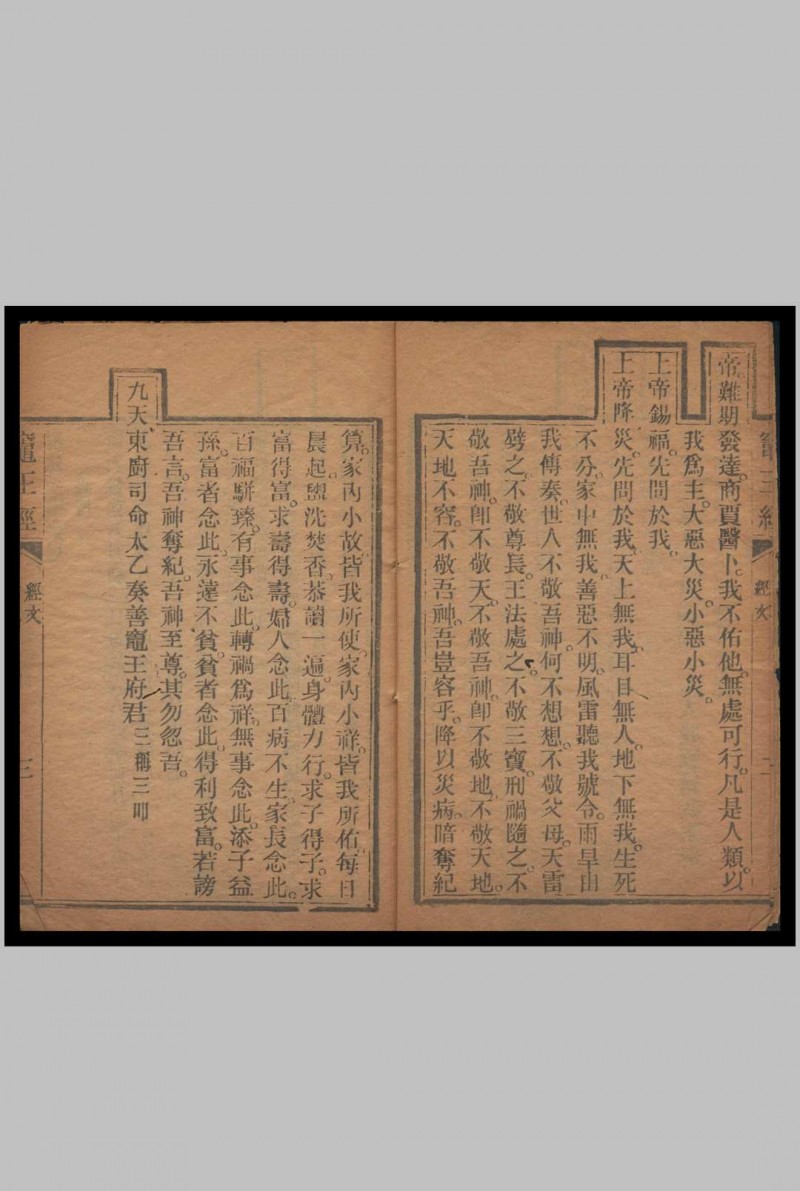 竈王經
經文
二
帝難期發達。商賈醫卜。我不佑他。無處可行。凡是人類。以
我爲主。大惡大災。小惡小災。
上帝錫福。先問於我。
上帝降災。先問於我。天上無我。耳目無人。地下無我。生死
不分。家中無我。善惡不明。風雷聽我號令。雨旱由
我傳奏。世人不敬吾神。何不想想。不敬父母。天雷
劈之。不敬尊長。王法處之。不敬三寶。刑禍隨之。不
敬吾神。卽不敬天。不敬吾神。卽不敬地。不敬天地。
天地不容。不敬吾神。吾豈容乎。降以災病。暗奪紀
算。家內小故。皆我所使。家內小祥。皆我所佑。每日
晨起。盥洗焚香。恭讀一遍。身體力行。求子得子。求
富得富。求壽得壽。婦人念此。百病不生。家長念此。
百福駢臻。有事念此。轉禍爲祥。無事念此。添子益
孫。富者念此。永遠不貧。貧者念此。得利致富。若謗
吾言。吾神奪紀。吾神至尊。其勿忽吾。
九天東廚司命太乙奏善竈王府君三稱三叩
竈王經
經文
三